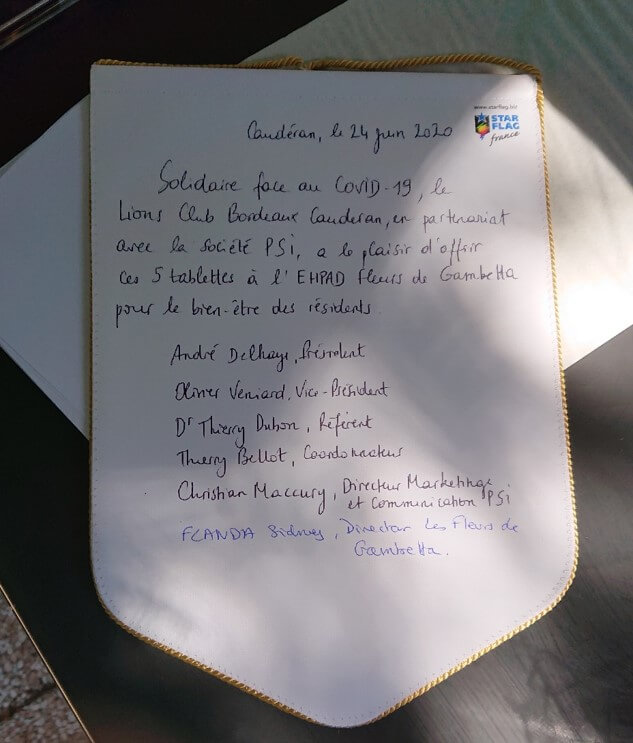 www.starflag.biz
STAR
FLAG
france
Caudéran, le 24 juin 2020
Solidaire face au COVID-19, le
Lions Club Bordeaux Caudéran, en partenariat
avec la société PSI, a le plaisir d'offrir
ces 5 tablettes à l'EHPAD Fleurs de Gambetta
pour le bien-être des résidents.
André Delhaye, Président
Olivier Veniard, Vice-Président
Dr Thierry Dubon, Référent
Thierry Bellot, Coordonnateur
Christian Maccury, Directeur Marketing
et Communication PSI
Directeur Les Fleurs de
Gambetta.